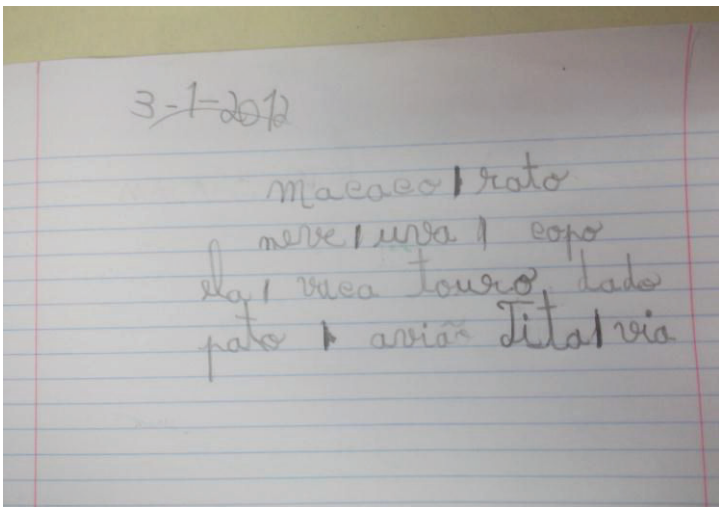 3-1-2012
macaco | rato
neve | uva | copo
ela | vaca touro, dado
pato | avião Tita | via